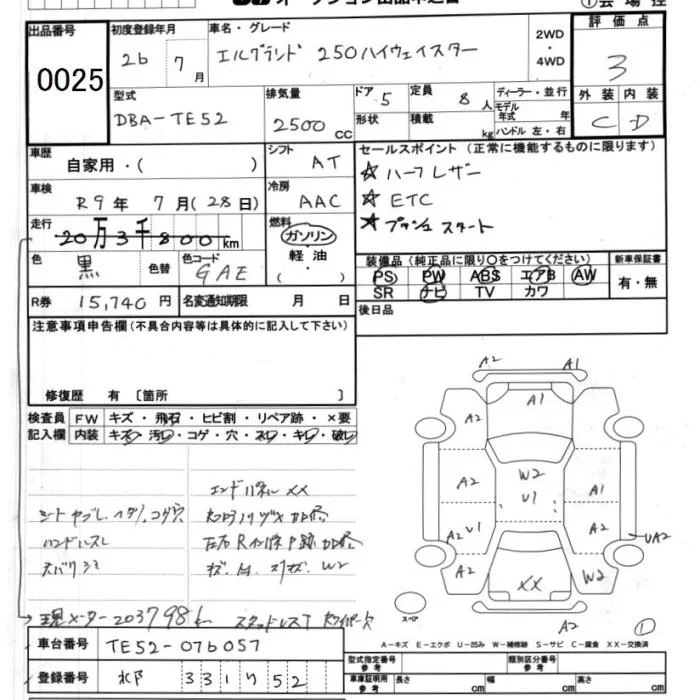 出品番号
0025
初度登録年月
26年 7月
車名・グレード
エルグランド 250ハイウェイスター
2WD
・
4WD
評価点
3
外装 内装
C D
型式
DBA-TE52
排気量
2500 CC
ドア 5
形状
定員 8人
積載 kg
ディーラー・並行
モデル年式 年
ハンドル 左・右
車歴
自家用・( )
シフト
AT
車検
R9年 7月(28日)
冷房
AAC
走行
20万3千800km
燃料
ガソリン
軽油
・
( )
色
黒
色替
色コード
GAE
R券 15,740円
名変通知期限 月 日
セールスポイント(正常に機能するものに限ります)
☆ハーフレザー
☆ETC
☆プッシュスタート
装備品(純正品に限り○をつけてください)
PS PW ABS エアB AW
SR ナビ TV カワ
新車保証書
有・無
後日品
注意事項申告欄(不具合内容等は具体的に記入して下さい)
修復歴 有 〔箇所 〕
検査員記入欄
FW キズ・飛石・ヒビ割・リペア跡・×要
内装 キズ・汚レ・コゲ・穴・スレ・キレ・破レ
エンドパネルXX
シートヤブレ、ヘタリ、コゲ穴
ハンドルスレ
キズ、W2
現メーター203798km
スタッドレスT
A2 A1
A2 A1 A2
W2
U1
A2 A1
A2 U1 A2 UA2
A2 XX W2
A2
スペア
①
A-キズ E-エクボ U-凹み W-補修跡 S-サビ C-腐食 XX-交換済
車台番号 TE52-076057
登録番号 331 52
型式指定番号 参考
類別区分番号 参考
車庫証明用 参考
長さ cm 幅 cm 高さ cm